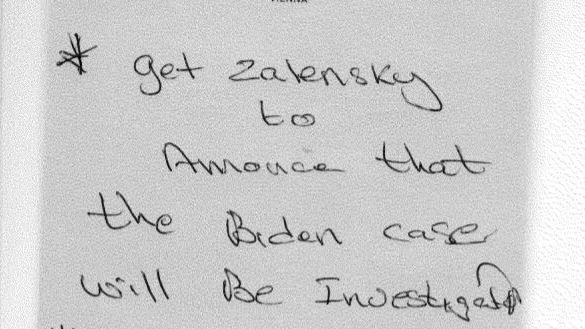 VIENNA
* get Zalensky
to
Annouce that
the Biden case
will Be Investigated